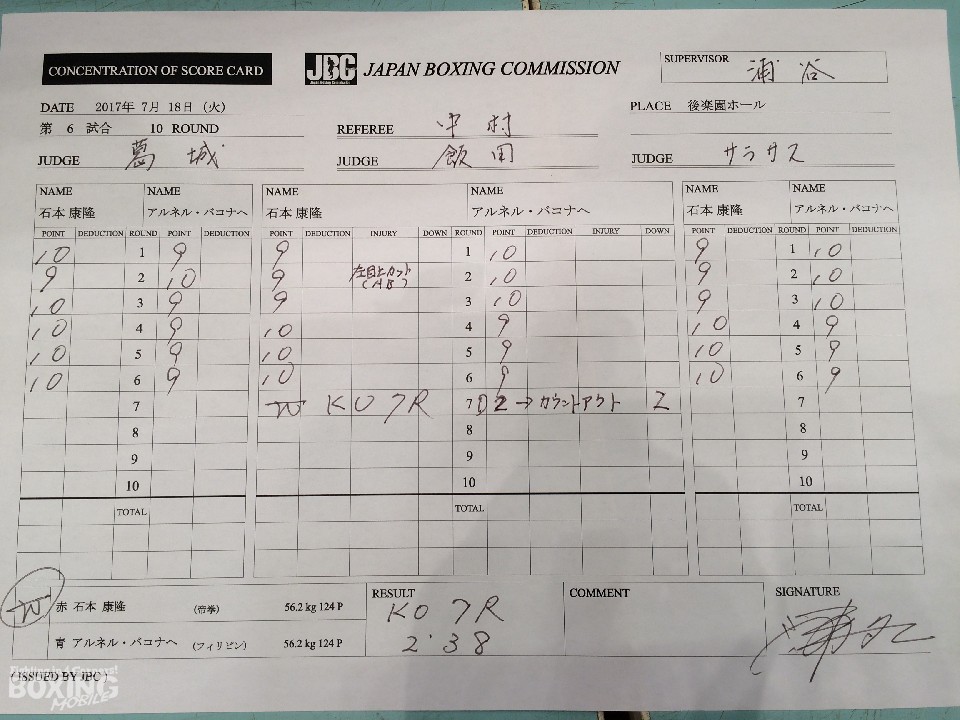 CONCENTRATION OF SCORE CARD JBC JAPAN BOXING COMMISSION SUPERVISOR 浦谷
DATE 2017年 7月 18日 (火) PLACE 後楽園ホール
第 6 試合 10 ROUND REFEREE 中村
JUDGE 葛城 JUDGE 飯田 JUDGE サラサス
NAME NAME NAME NAME NAME NAME
石本 康隆 アルネル・バコナヘ 石本 康隆 アルネル・バコナヘ 石本 康隆 アルネル・バコナヘ
POINT DEDUCTION ROUND POINT DEDUCTION POINT DEDUCTION INJURY DOWN ROUND POINT DEDUCTION INJURY DOWN POINT DEDUCTION ROUND POINT DEDUCTION
10 1 9 9 1 10 9 1 10
9 2 10 9 左目上カット (AB) 2 10 9 2 10
10 3 9 9 3 10 9 3 10
10 4 9 10 4 9 10 4 9
10 5 9 10 5 9 10 5 9
10 6 9 10 6 9 10 6 9
7 W KO 7R 7 D2→カウントアウト 2 7
8 8 8
9 9 9
10 10 10
TOTAL TOTAL TOTAL
W 赤 石本 康隆 (帝拳) 56.2 kg 124 P RESULT KO 7R 2'38 COMMENT SIGNATURE
青 アルネル・バコナヘ (フィリピン) 56.2 kg 124 P
( ISSUED BY JBC )
Fighting in 4 Corners!
BOXING
MOBILE